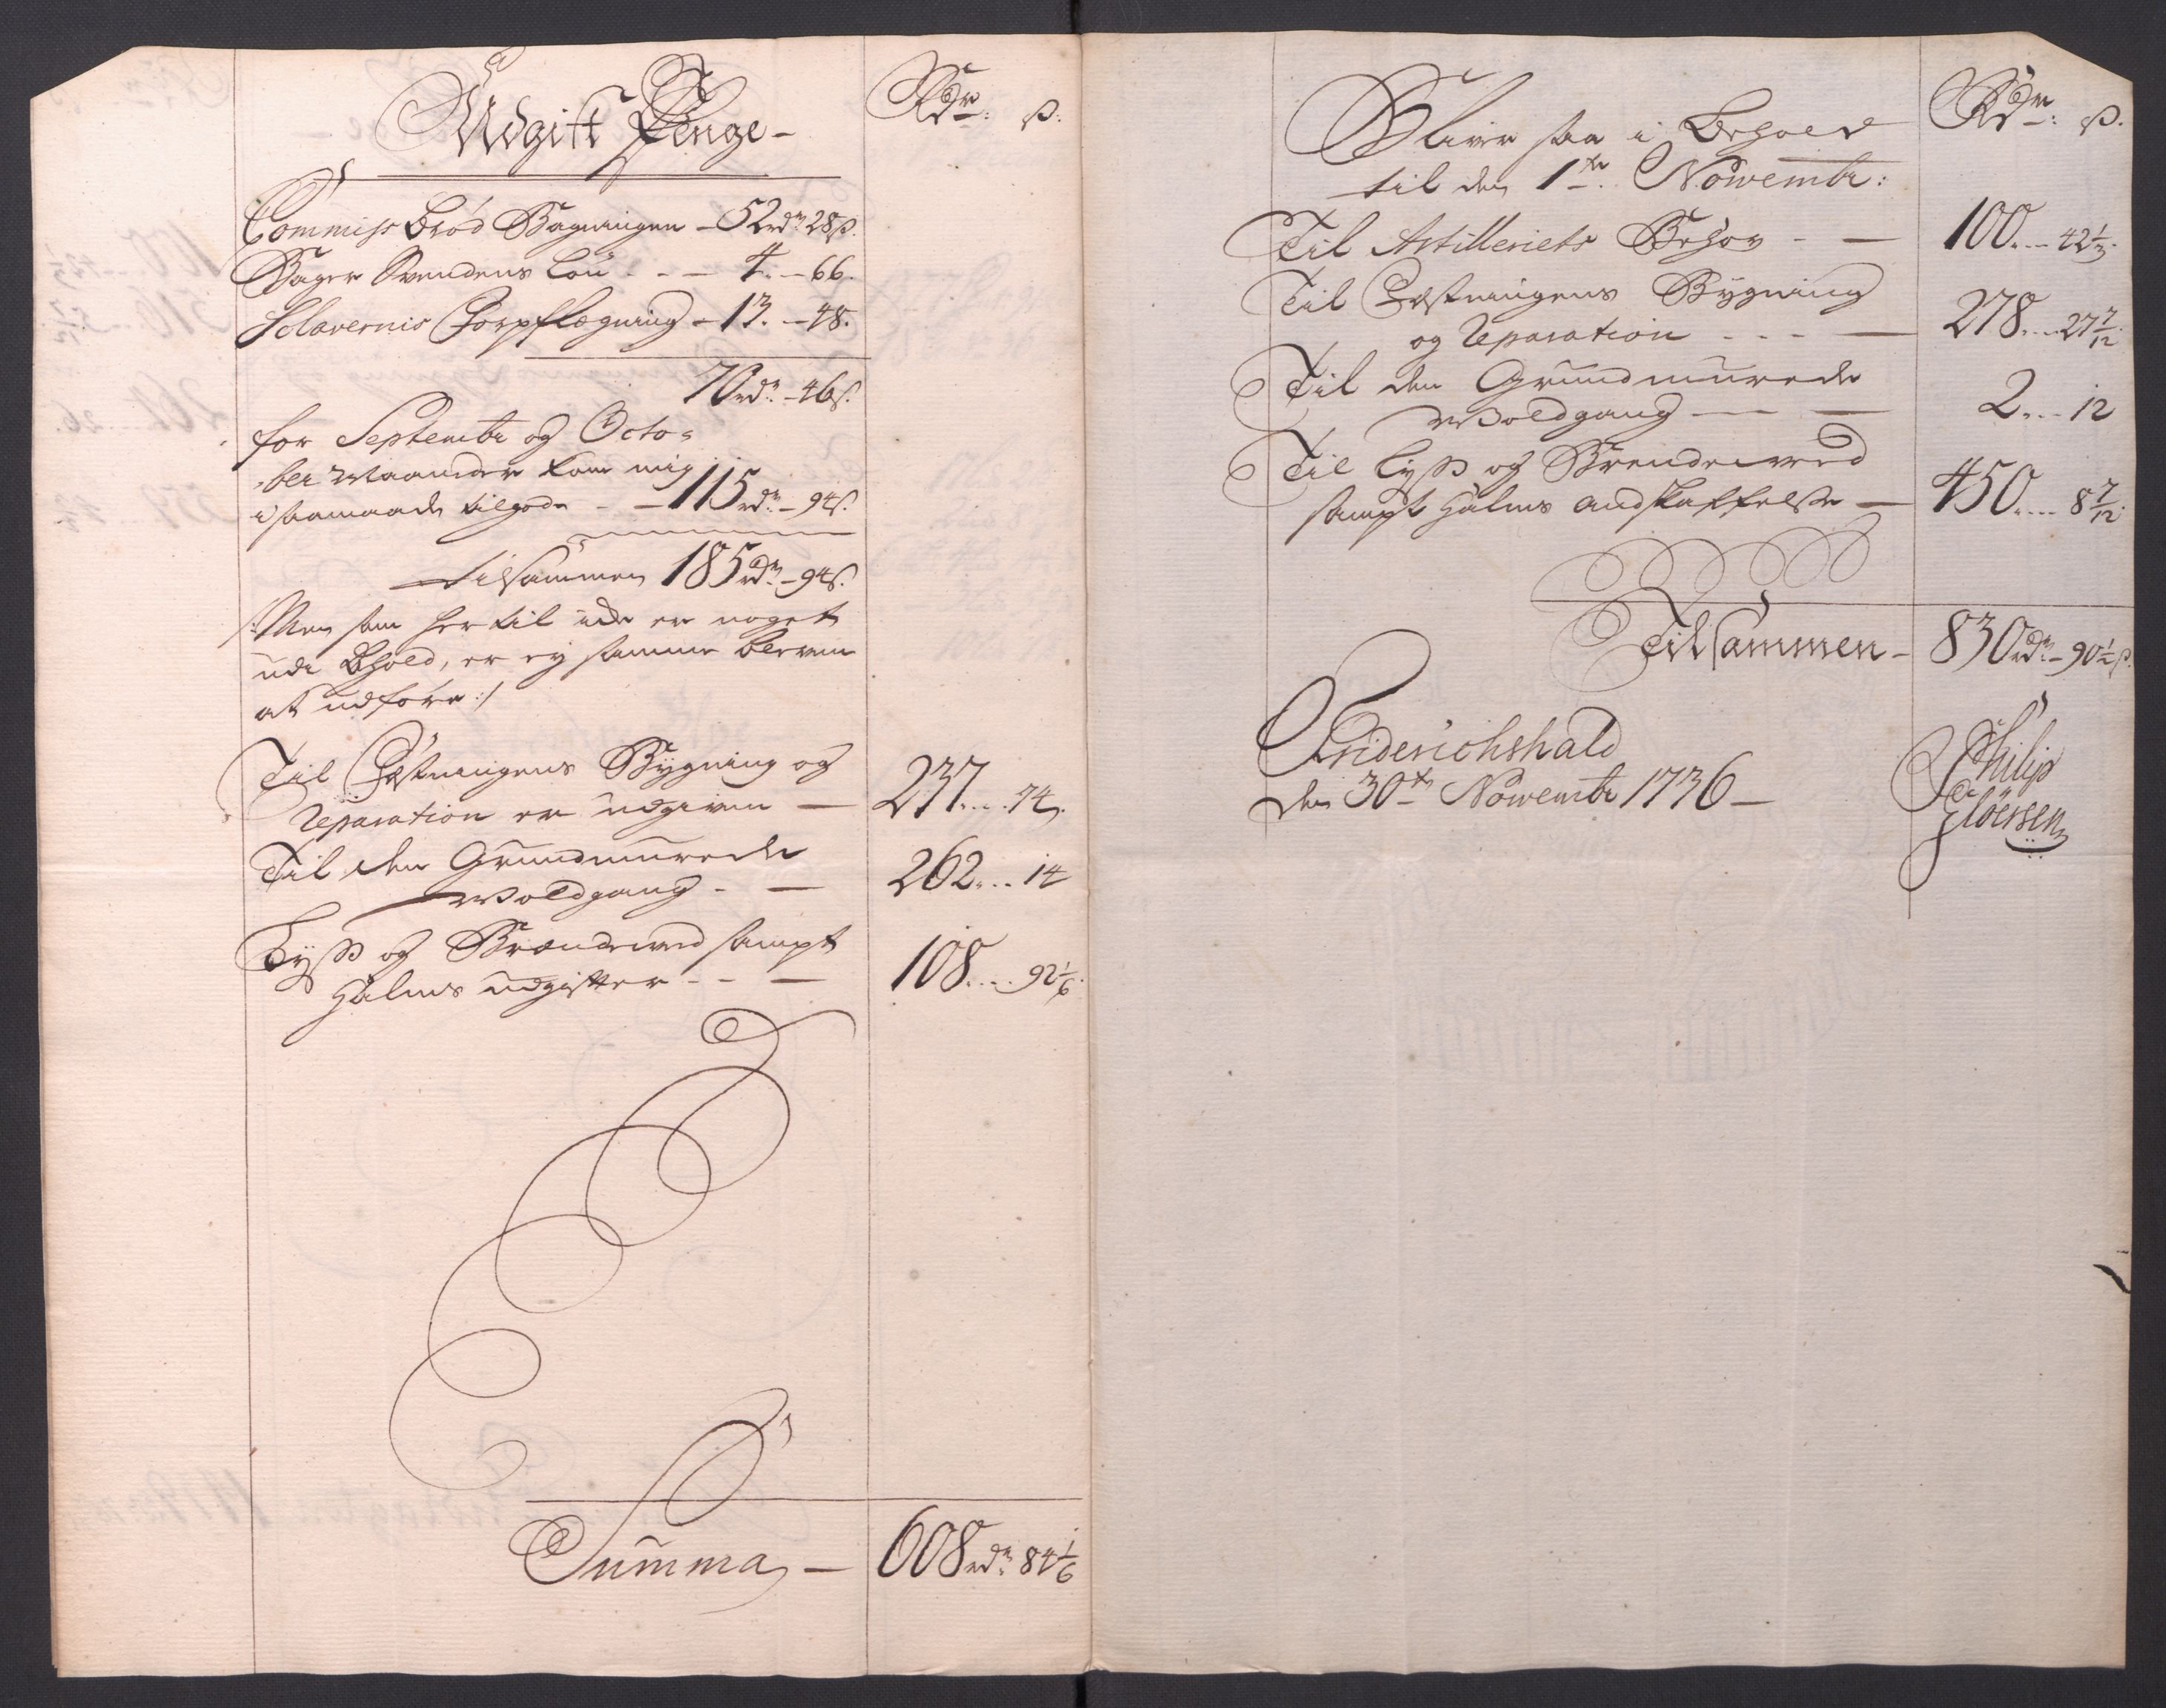 Udgift Penge – Rdr: ß:
Commiss Brød Bagningen – 52rdr 28ß.
Bager Svendens Lön . . – 4. – 66.
Sclavernis Forpflægning – 13. – 48.
70rdr. – 46ß.
for Septembr og Octo=
ber Maander kom mig
i saamaade tilgode – – 115rdr – 94ß.
tilsammen 185rdr – 94ß.
/: Men som her til inde er noget
udi Behold, er ey samme bleven
at udføre :/
Til Fæstningens Bÿgning og
Reparation er udgiven — 237 . . . 74.
Til den Grundmurede
Woldgang . — 262 . . . 14
Lyss og Brændeved sampt
Halms udgifter . . — 108 . . . 92 1/6.
Summa, — 608rdr 84 1/6
Rdr: ß.
Bliver saa i Behold
til den 1te Nowembr:
Til Artilleriets Behov – — 100 . . . 42 1/3.
Til Fæstningens Bÿgning
og Reparation . . . — 278 . . . 27 7/12.
Til den Grundmurede
Woldgang — — 2 . . . 12
Til Lyss og Brendeved
sampt Halms andskaffelse — 450 . . . 8 7/12.
Tilsammen – 830rdr – 90 1/2 ß.
Friderichshald
den 30te Nowembr 1736 — Philip